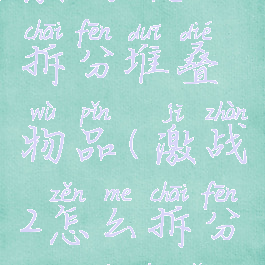 chāi fēn duī dié
拆分堆叠
wù pǐn jī zhàn
物品(激战
zěn me chāi fēn
2怎么拆分